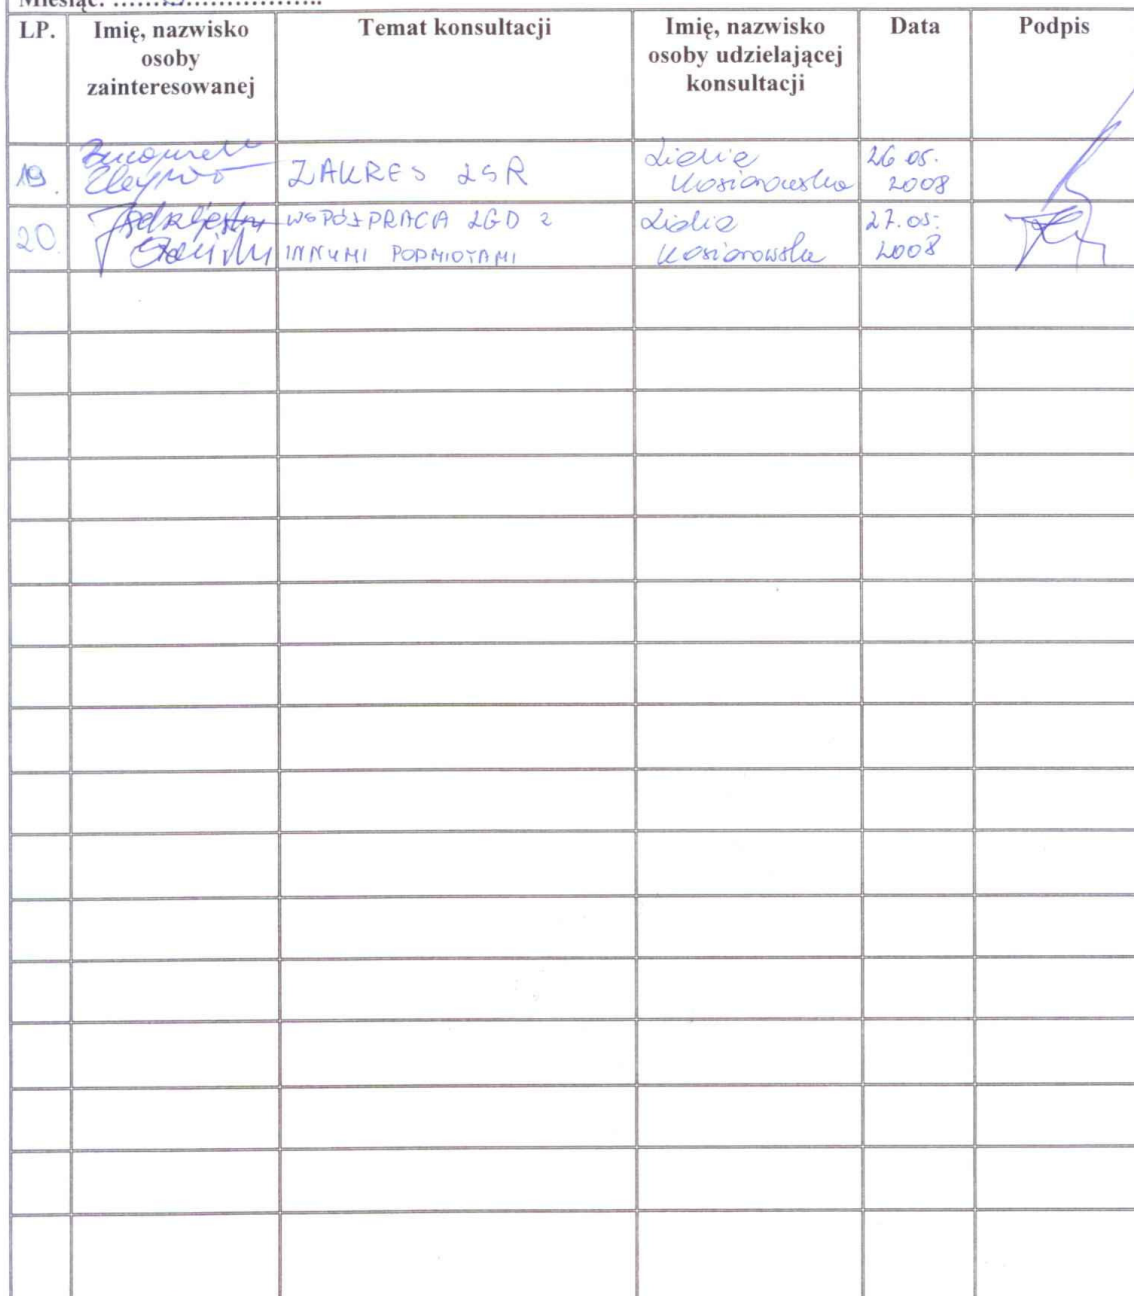 Miesiąc:
LP.
Imię, nazwisko
osoby
zainteresowanej
Temat konsultacji
Imię, nazwisko
osoby udzielającej
konsultacji
Data
Podpis
19.
ZAKRES LSR
Lidia
Kosiorowska
26.05.
2008
20.
WSPÓŁPRACA LGD Z
INNYMI PODMIOTAMI
Lidia
Kosiorowska
27.05.
2008